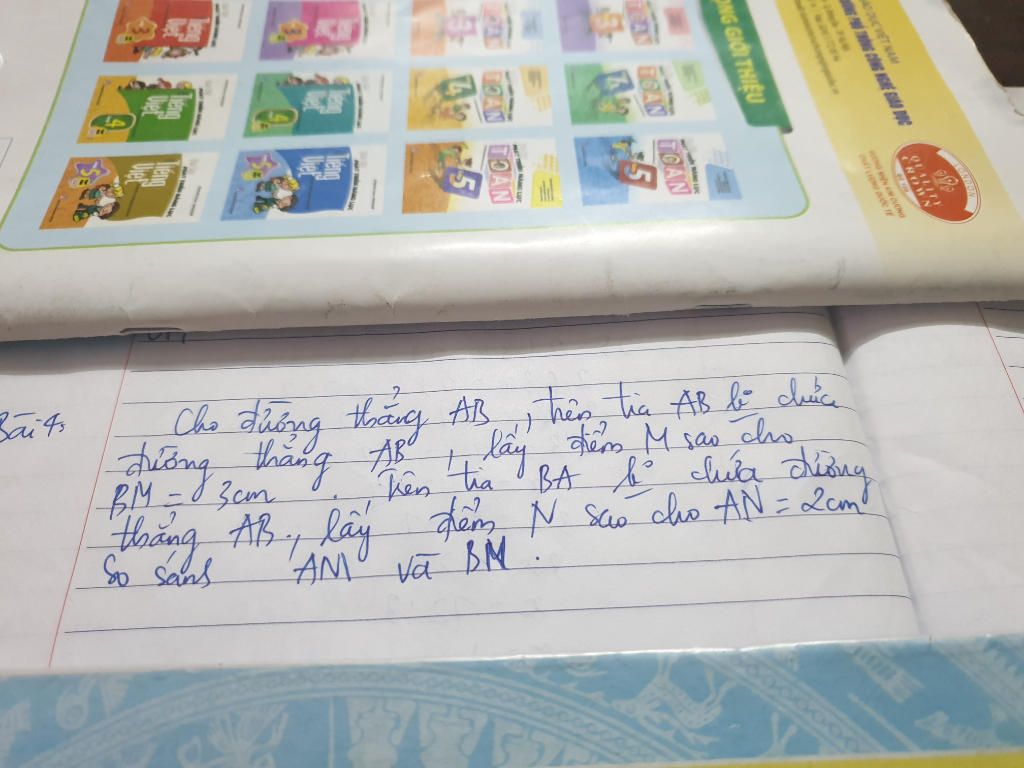 ỌNG GIỚI THIỆU
Tiếng Việt
Tiếng Việt
TOÁN
TOÁN
Tiếng Việt
4
Tiếng Việt
4
TOÁN
4
TOÁN
4
Tiếng Việt
5
Tiếng Việt
5
TOÁN
5
TOÁN
5
QUALITY
CROWN
Bài 4:
Cho đường thẳng AB, trên tia AB bị chứa
đường thẳng AB, lấy điểm M sao cho
BM = 3cm. Trên tia BA bị chứa đường
thẳng AB, lấy điểm N sao cho AN = 2cm
So sánh AM và BM.